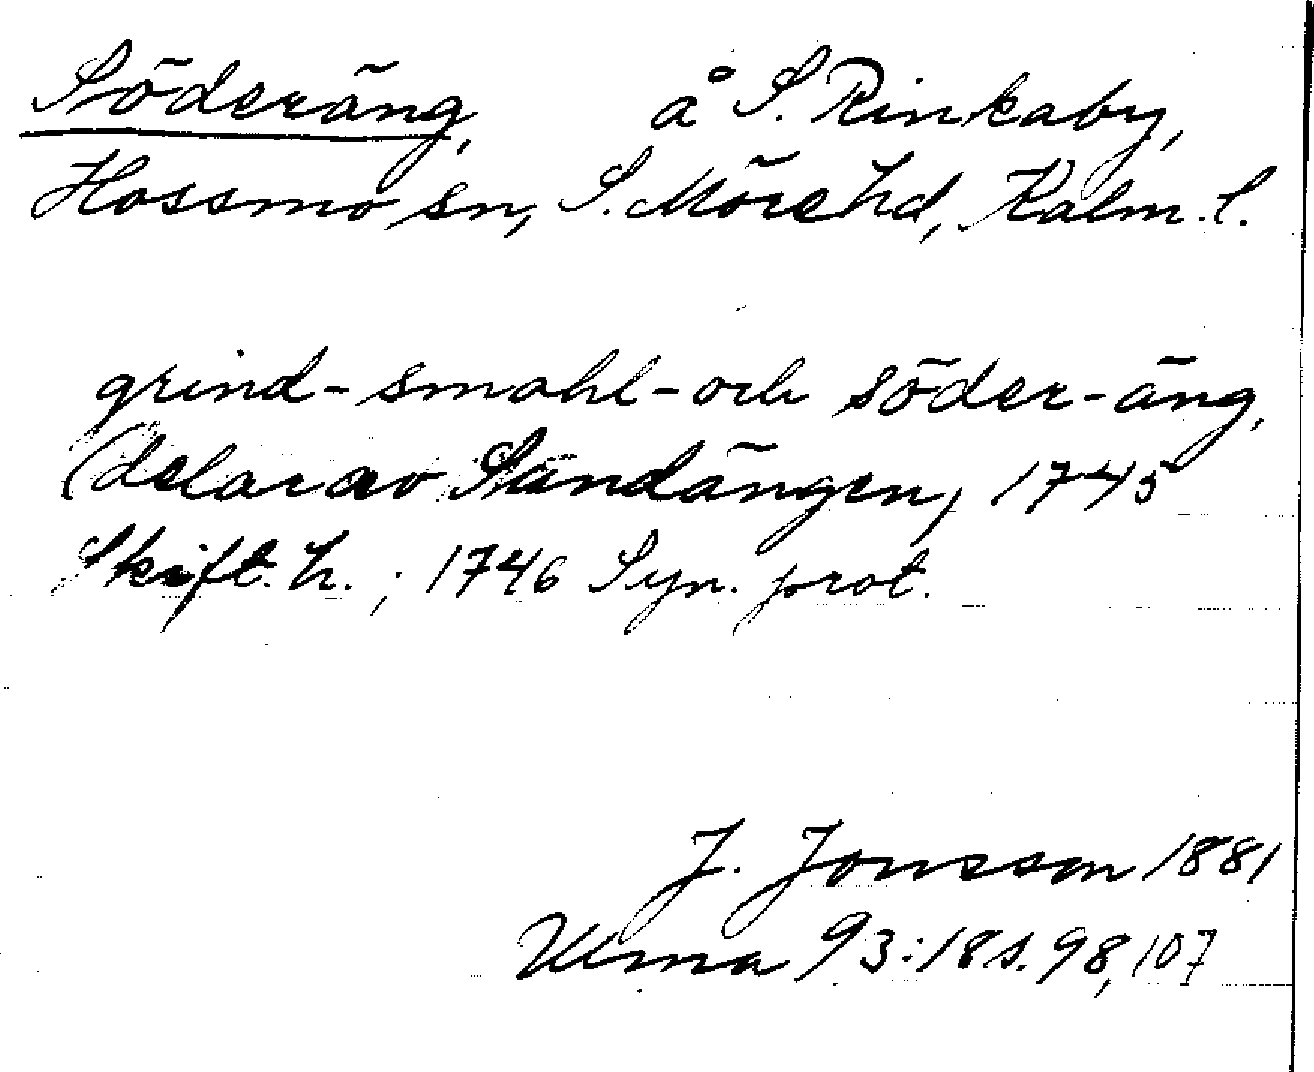 Söderäng, å S. Rinkaby,
Hossmo sn, S. Möre hd, Kalm. l.
grind- smahl- och söder-äng,
(delar av Sandängen, 1745
Skift. h. ; 1746 Syn. prot.
J. Jonsson 1881
Ulma 93:18 s. 98, 107